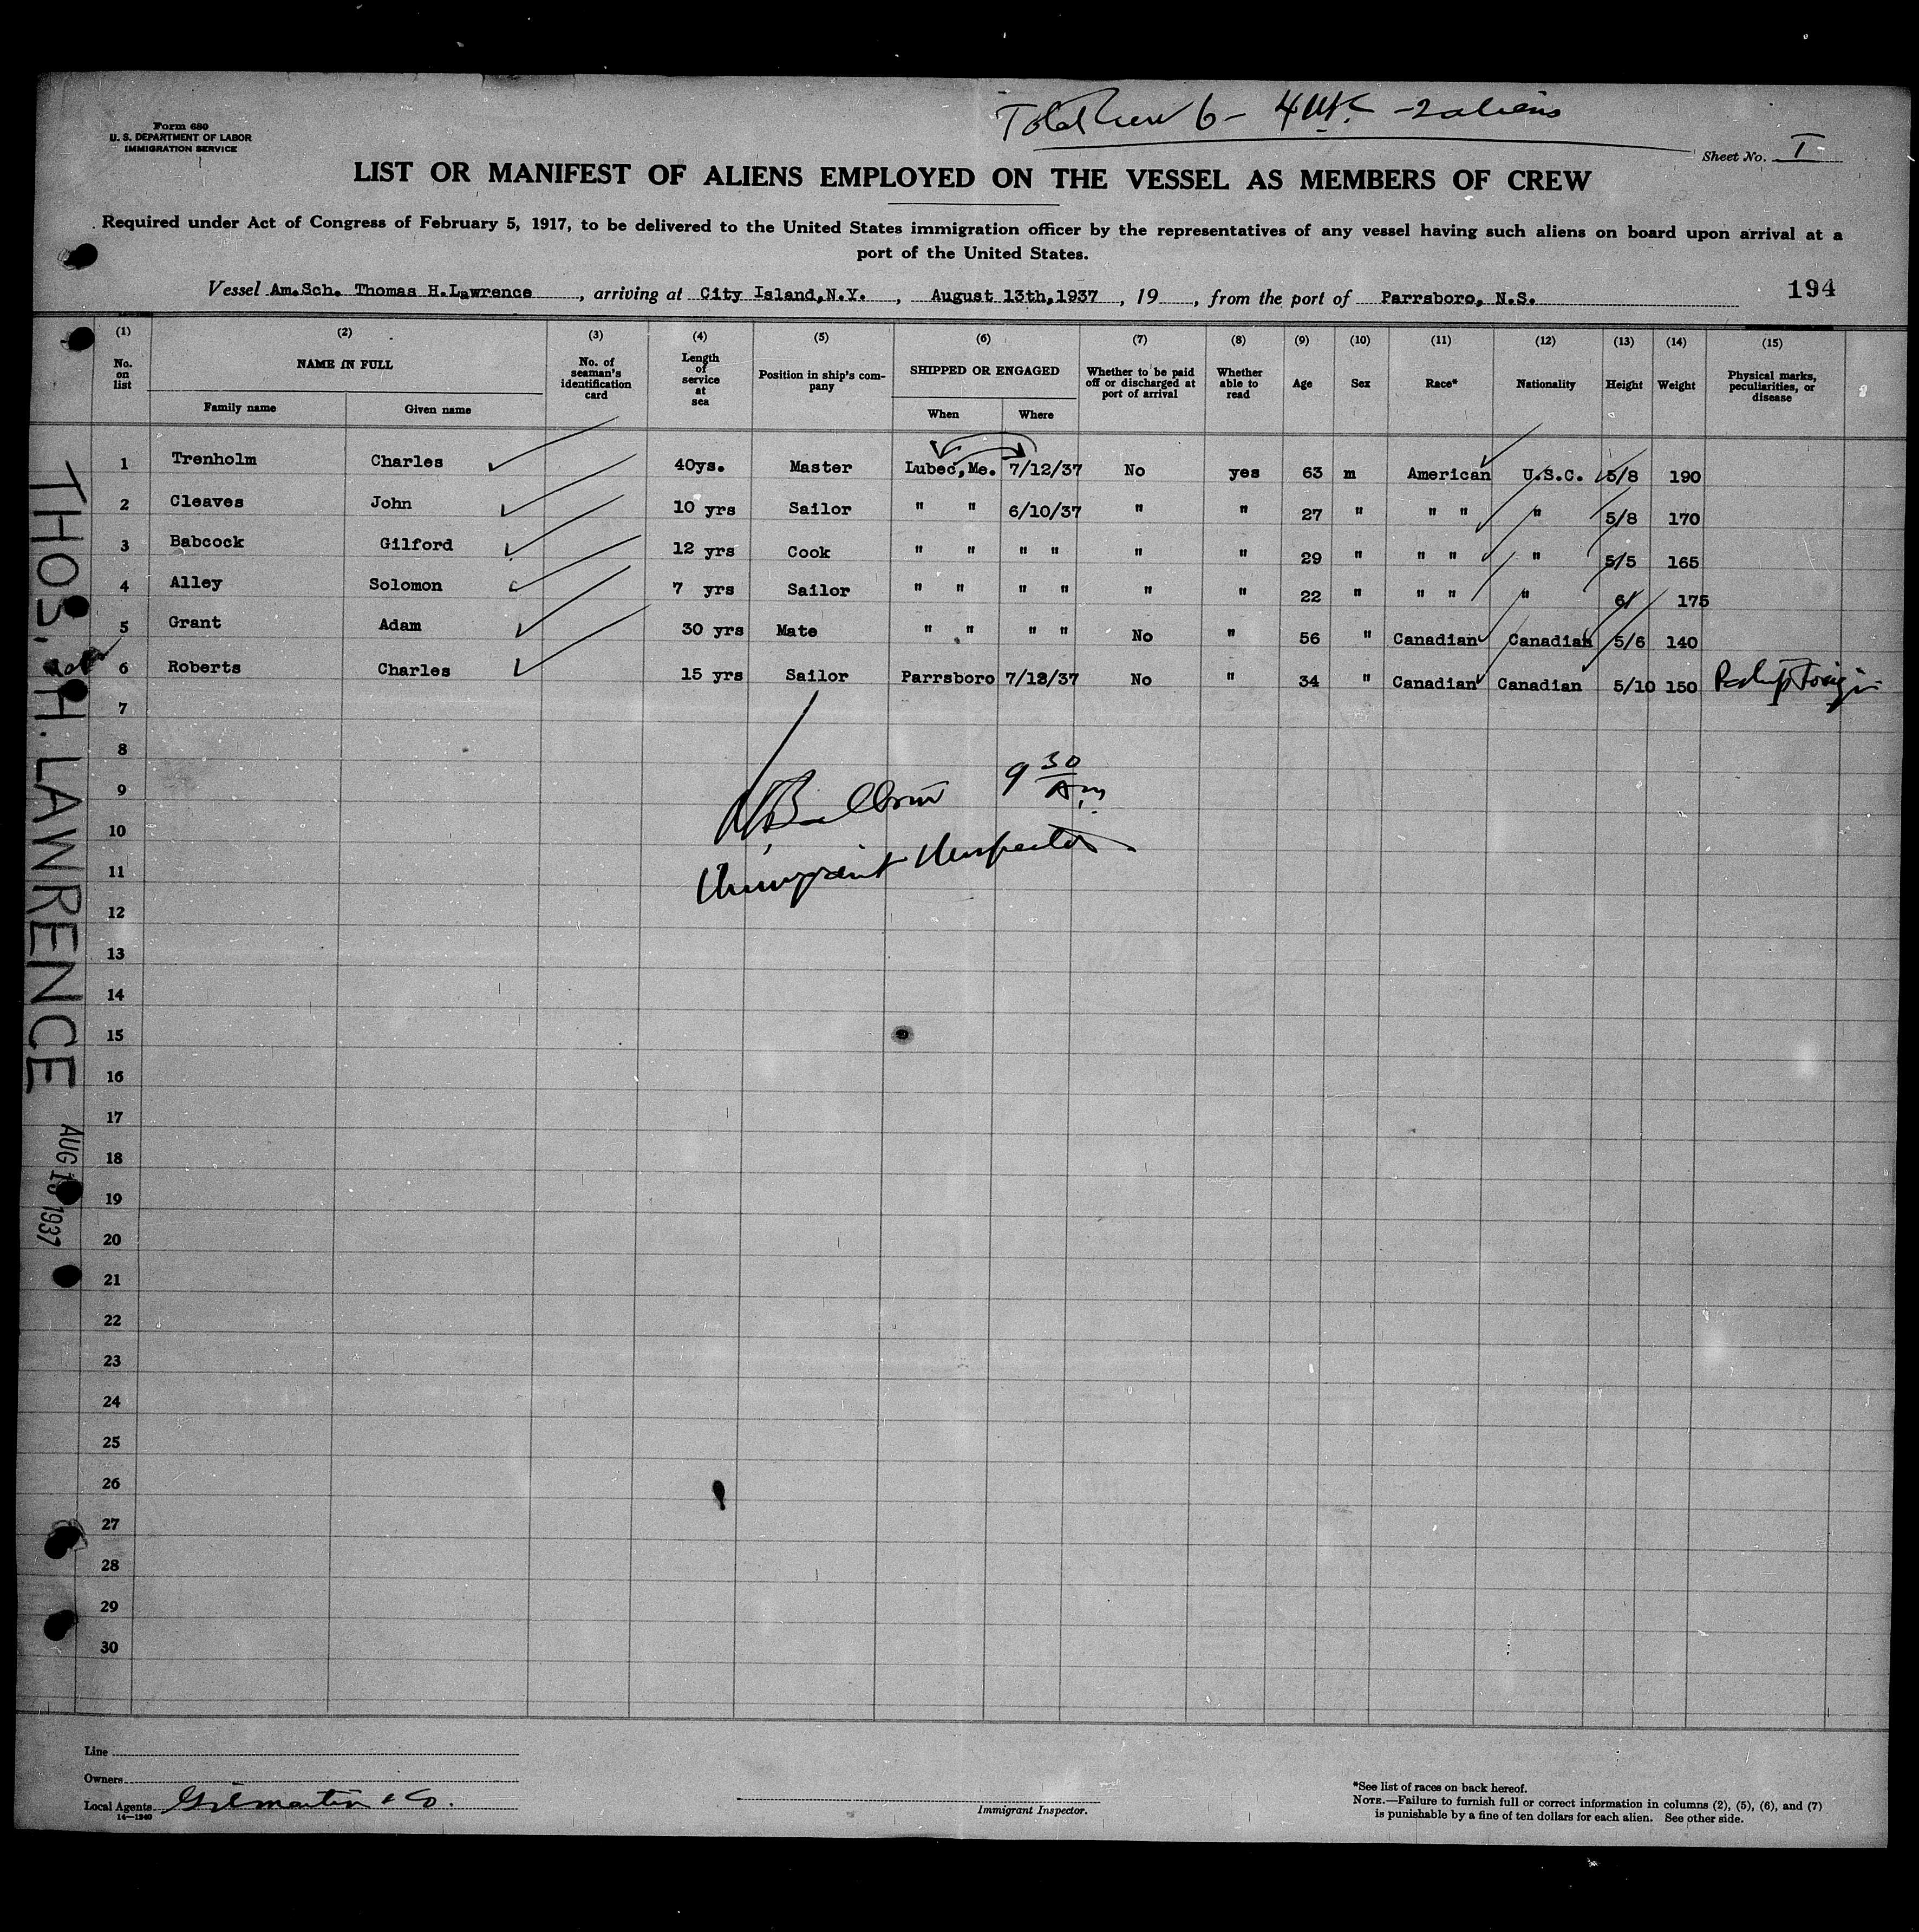 Total Crew 6 - 4 U.S.C. - 2 aliens
Form 680
U. S. DEPARTMENT OF LABOR
IMMIGRATION SERVICE
Sheet No. I
LIST OR MANIFEST OF ALIENS EMPLOYED ON THE VESSEL AS MEMBERS OF CREW
Required under Act of Congress of February 5, 1917, to be delivered to the United States immigration officer by the representatives of any vessel having such aliens on board upon arrival at a
port of the United States.
Vessel Am.Sch. Thomas H.Lawrence, arriving at City Island,N.Y., August 13th,1937, 19, from the port of Parrsboro, N.S.
194
(1) (2) (3) (4) (5) (6) (7) (8) (9) (10) (11) (12) (13) (14) (15)
No. on list
NAME IN FULL
Family name Given name
No. of seaman's identification card
Length of service at sea
Position in ship's company
SHIPPED OR ENGAGED
When Where
Whether to be paid off or discharged at port of arrival
Whether able to read
Age
Sex
Race*
Nationality
Height
Weight
Physical marks, peculiarities, or disease
1 Trenholm Charles 40ys. Master Lubec,Me. 7/12/37 No yes 63 m American U.S.C. 5/8 190
2 Cleaves John 10 yrs Sailor " " 6/10/37 " " 27 " " " " 5/8 170
3 Babcock Gilford 12 yrs Cook " " " " " " 29 " " " " 5/5 165
4 Alley Solomon 7 yrs Sailor " " " " " " 22 " " " " 6/ 175
5 Grant Adam 30 yrs Mate " " " " No " 56 " Canadian Canadian 5/6 140
6 Roberts Charles 15 yrs Sailor Parrsboro 7/12/37 No " 34 " Canadian Canadian 5/10 150
7
8
9
10
11
12
13
14
15
16
17
18
19
20
21
22
23
24
25
26
27
28
29
30
9 30 Am.
Immigrant Inspector
THOS. H. LAWRENCE
AUG 13 1937
Line
Owners
Local Agents Gilmartin & Co.
14—1240
Immigrant Inspector.
*See list of races on back hereof.
NOTE.—Failure to furnish full or correct information in columns (2), (5), (6), and (7)
is punishable by a fine of ten dollars for each alien. See other side.